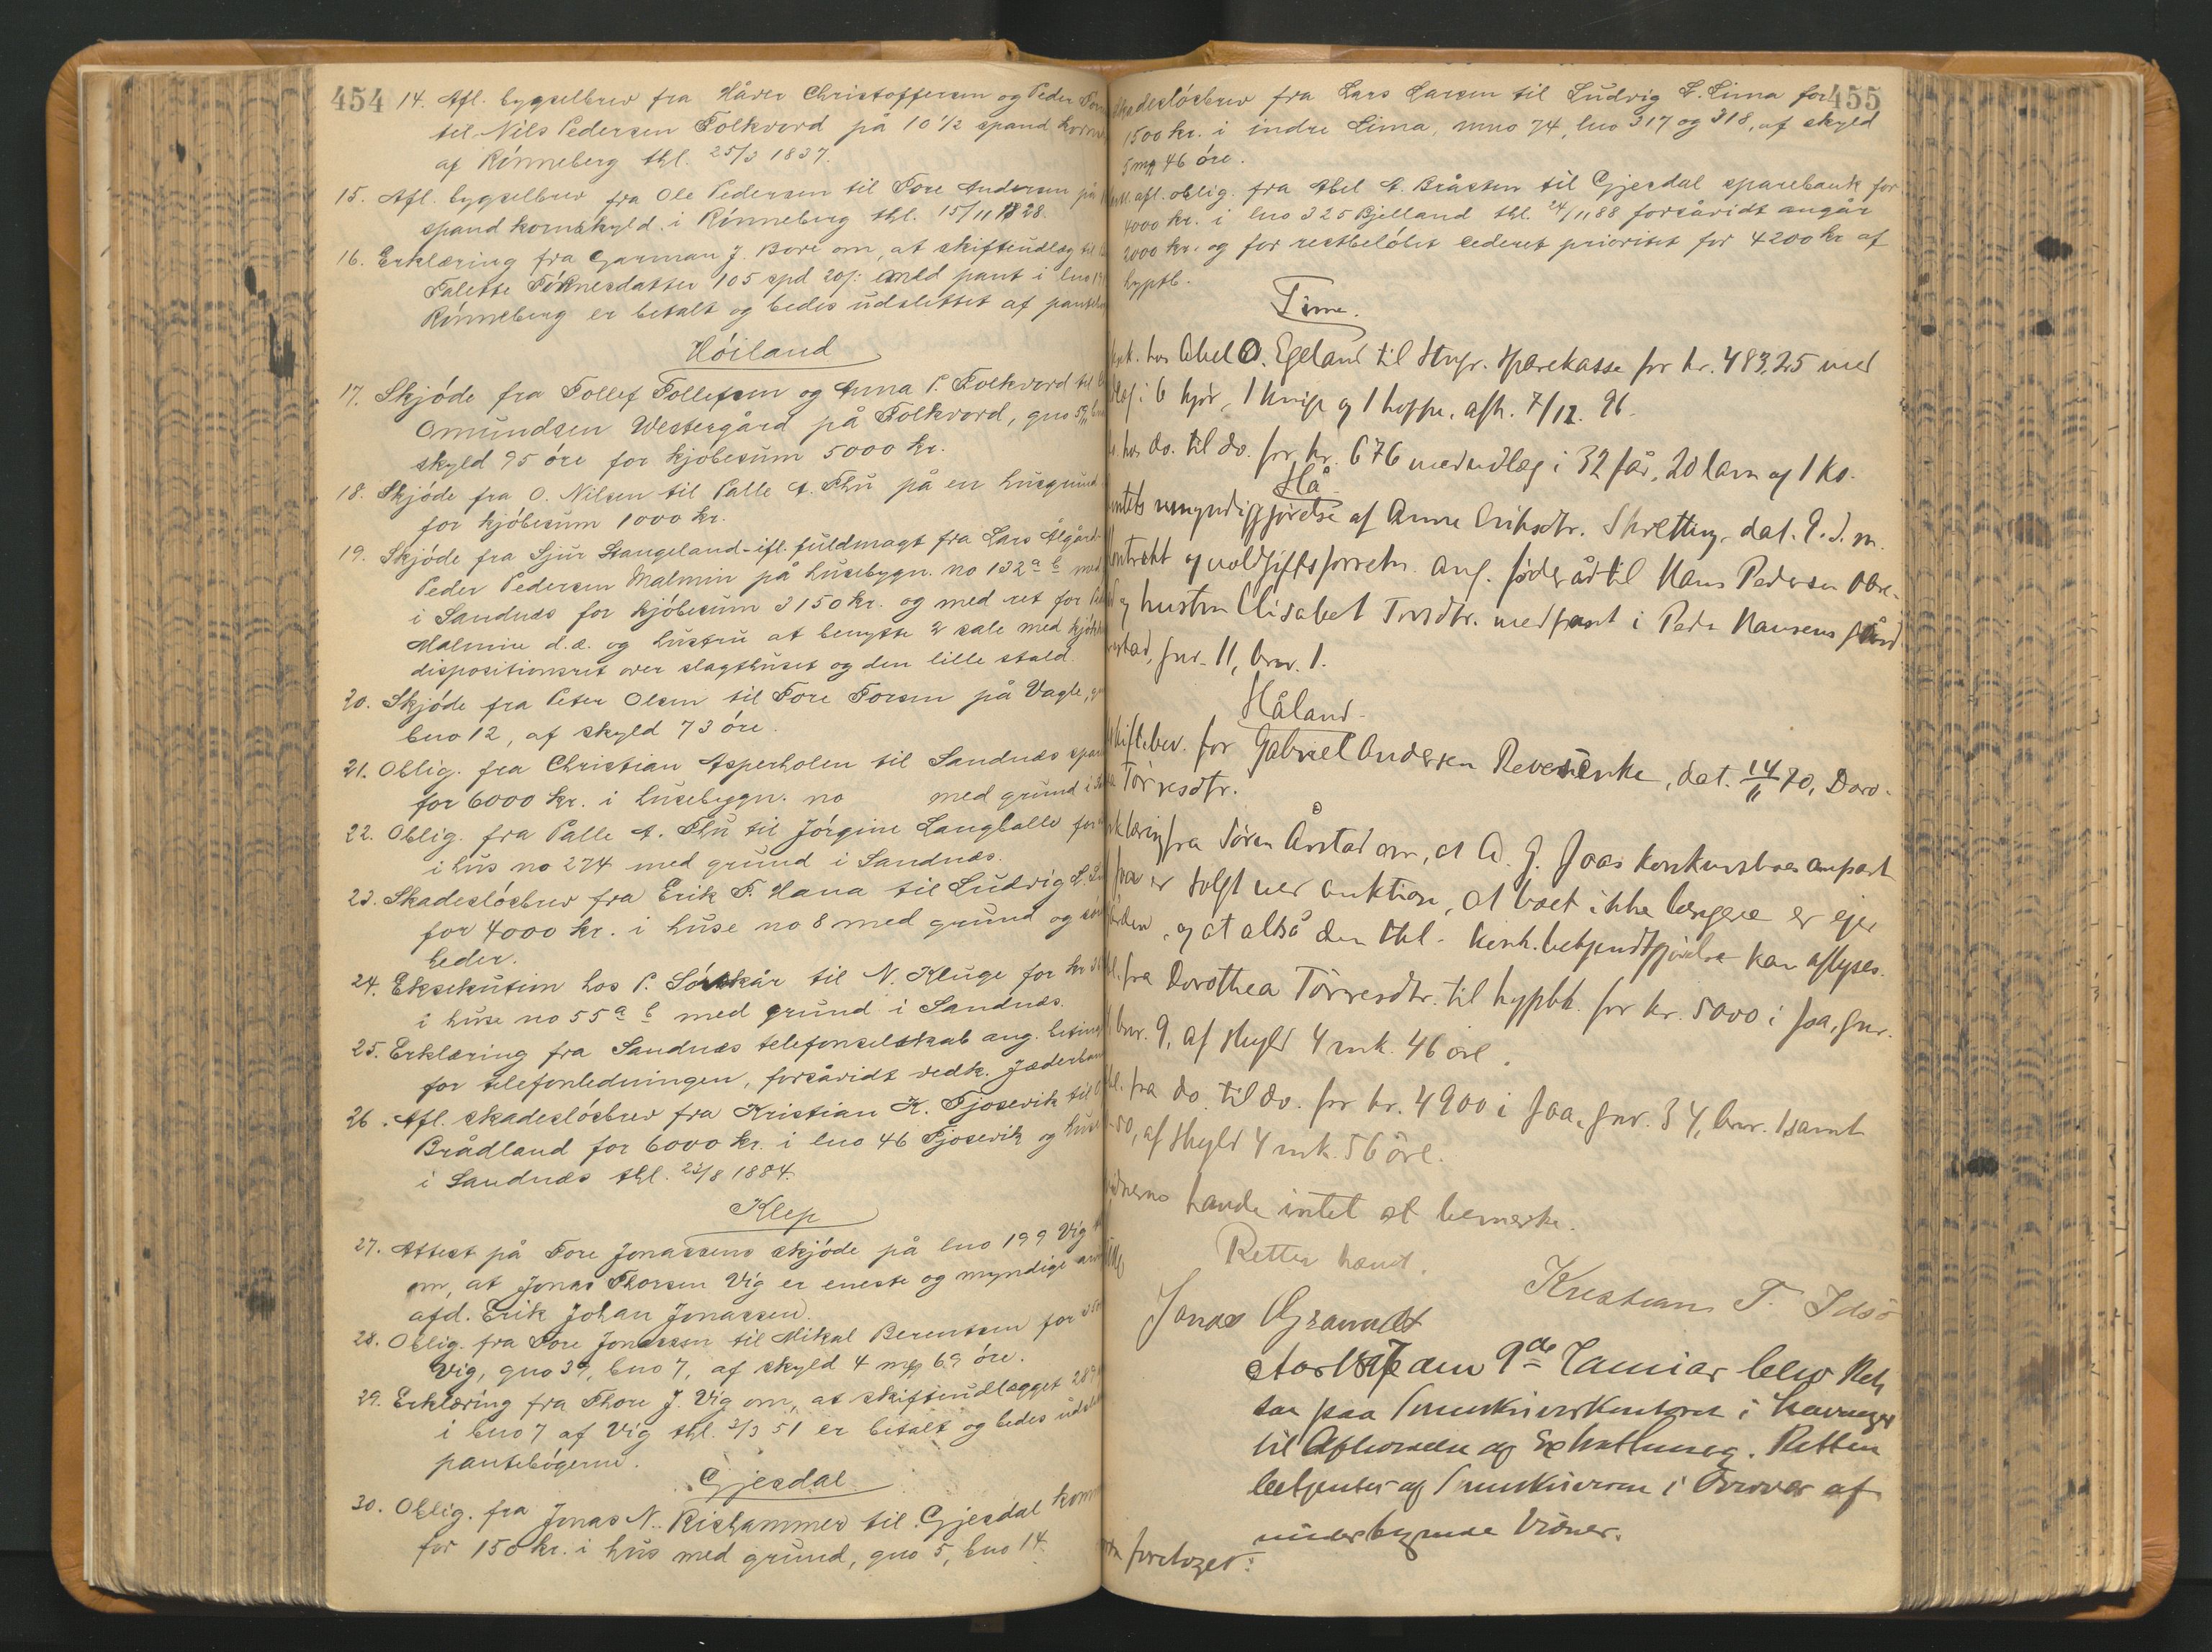 454
14. Afl. bygselbrev fra Håver Christoffersen og Peder
til Nils Pedersen Folkvord på 10 1/2 spand korn
af Rönneberg thl. 25/3 1837.
15. Afl. bygselbrev fra Ole Pedersen til Tore Andersen på
spand kornskyld i Rönneberg thl. 15/11 1828.
16. Erklæring fra Garman J. Bore om, at skifteudlæg til
Falette Tönnesdatter 105 spd 20 s: med pant i bno
Rönneberg er betalt og bedes udslettet af pantebø
Höiland
17. Skjöde fra Tollef Tollefsen og Anna P. Folkvord til
Omundsen Westergård på Folkvord, gno 59,
skyld 95 öre for kjöbesum 5000 kr.
18. Skjöde fra O. Nilsen til Palle A. Thu på en husgrund
for kjöbesum 1000 kr.
19. Skjöde fra Sjur Stangeland ifl. fuldmagt fra Lars Ålgård
Peder Pedersen Malmin på husebygn. no 132 a b med
i Sandnæs for kjöbesum 3150 kr. og med ret for
Malmin d.æ. og hustru at benytte 2 sale med kjök
dispositionsret over slagthuset og den lille stald.
20. Skjöde fra Peter Olsen til Tore Torsen på Vagle,
bno 12, af skyld 73 öre.
21. Oblig. fra Christian Asperholen til Sandnæs spar
for 6000 kr. i husebygn. no med grund i
22. Oblig. fra Palle A. Thu til Jörgine Langballe for
i hus no 274 med grund i Sandnæs.
23. Skadeslösbrev fra Erik T. Hana til Ludvig L.
for 4000 kr. i huse no 8 med grund og
heder.
24. Eksekution hos P. Sörskår til N. Kluge for kr
i huse no 55 a b med grund i Sandnæs.
25. Erklæring fra Sandnæs telefonselskab ang. beting
for telefonledningen, forsåvidt vedk. Jæderban
26. Afl. skadeslösbrev fra Kristian K. Gjosevik til
Brådland for 6000 kr. i bno 46 Gjosevik og huse
i Sandnæs thl. 23/8 1884.
Klep
27. Attest på Tore Jonassens skjöde på bno 199 Vig
om, at Jonas Thorsen Vig er eneste og myndige
afd. Erik Johan Jonassen.
28. Oblig. fra Tore Jonassen til Mikal Berentsen for
Vig, gno 39, bno 7, af skyld 4 mk 69 öre.
29. Erklæring fra Thore J. Vig om, at skifteudlægget
i bno 7 af Vig thl. 2/3 51 er betalt og bedes udsl
pantebögerne.
Gjesdal
30. Oblig. fra Jonas N. Rishammer til Gjesdal kom
for 150 kr. i hus med grund, gno 5, bno 14.
455
skadeslösbrev fra Lars Larsen til Ludvig L. Lima for
1500 kr. i indre Lima, mno 74, lno 317 og 318, af skyld
5 mk 46 öre.
afl. oblig. fra Abel A. Bråsten til Gjesdal sparebank for
4000 kr. i lno 325 Bjelland thl. 24/11 88 forsåvidt angår
2000 kr. og for restbelöbet cederet prioritet for 4200 kr af
hyptb.
Time.
hos Abel O. Egeland til Stvgr. Sparekasse for kr. 483,25 med
udlæg i 6 kjör, 1 kvige og 1 hoppe, afh. 7/12. 96.
hos do. til do. for kr. 676 med udlæg i 32 får, 20 lam og 1 ko.
Hå
umyndiggjörelse af Anne Eriksdtr. Skretting, dat. d. m.
kontrakt og voldgiftsforretn. ang. föderåd til Hans Pedersen Obre-
og hustru Elisabet Torsdtr. med pant i Peder Hansens gård
gnr. 11, bnr. 1.
Håland
skiftebev. for Gabriel Andersen Revesenke, dat. 14/11 70, Doro-
Törresdtr.
erklæring fra Sören Årstad om, at A. J. Joas konkursboes anpart
Joa er solgt ved auktion, at boet ikke længere er ejer
og at altså den thl. konk. bekjendtgjörelse kan aflyses.
fra Dorothea Törresdtr. til hyptbk. for kr. 5000 i Joa, gnr.
bnr. 9, af skyld 4 mk. 46 öre.
fra do. til do. for kr. 4900 i Joa, gnr. 34, bnr. 1 samt
50, af skyld 4 mk. 56 öre.
Vidnerne havde intet at bemærke.
Retten hævet.
Jonas Gramstt Kristian T. Idsö
den 9de Januar blev Ret
sat paa Sorenskriverkontoret i Stavanger
til Aflæselse og Exstrahering. Retten
betjentes af Sorenskriveren i Overvær af
underskrevne Vidner.
foretoges: